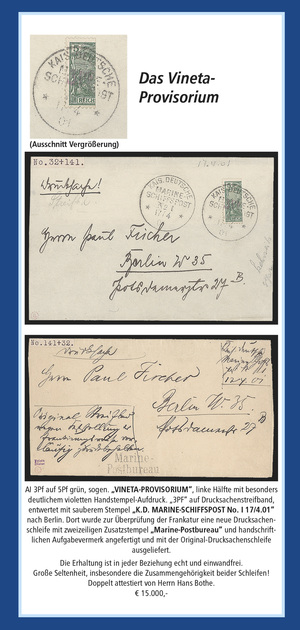 Das Vineta-
Provisorium
KAIS. DEUTSCHE
MARINE-
SCHIFFSPOST
(Ausschnitt Vergrößerung)
No. 32+141.
17.4.01
Drucksache!
KAIS. DEUTSCHE
MARINE-
SCHIFFSPOST
No 1
17/4
KAIS. DEUTSCHE
Herrn Paul Fischer
Berlin W 35
Potsdamerstr 27 B.
No. 141+32.
Drucksache
Herrn Paul Fischer
Berlin W. 35.
Potsdamerstr 27 B
Original Streifband
Marine-
Postbureau
AI 3PF auf 5PF grün, sogen. „VINETA-PROVISORIUM", linke Hälfte mit besonders
deutlichem violetten Handstempel-Aufdruck. „3PF" auf Drucksachenstreifband,
entwertet mit sauberem Stempel „K.D. MARINE-SCHIFFSPOST No. I 17/4.01"
nach Berlin. Dort wurde zur Überprüfung der Frankatur eine neue Drucksachen-
schleife mit zweizeiligen Zusatzstempel „Marine-Postbureau" und handschrift-
lichen Aufgabevermerk angefertigt und mit der Original-Drucksachenschleife
ausgeliefert.
Die Erhaltung ist in jeder Beziehung echt und einwandfrei.
Große Seltenheit, insbesondere die Zusammengehörigkeit beider Schleifen!
Doppelt attestiert von Herrn Hans Bothe.
€ 15.000,-